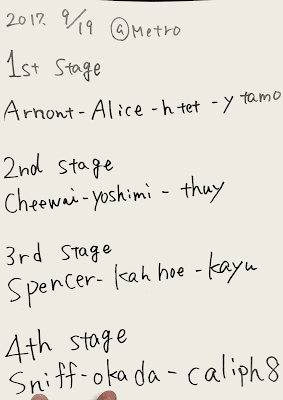 2017. 9/19 @Metro
1st Stage
Arnont - Alice - h tet - y tamo
2nd stage
Cheewai - yoshimi - thuy
3rd stage
Spencer - kah hoe - kayu
4th stage
Sniff - okada - caliph8